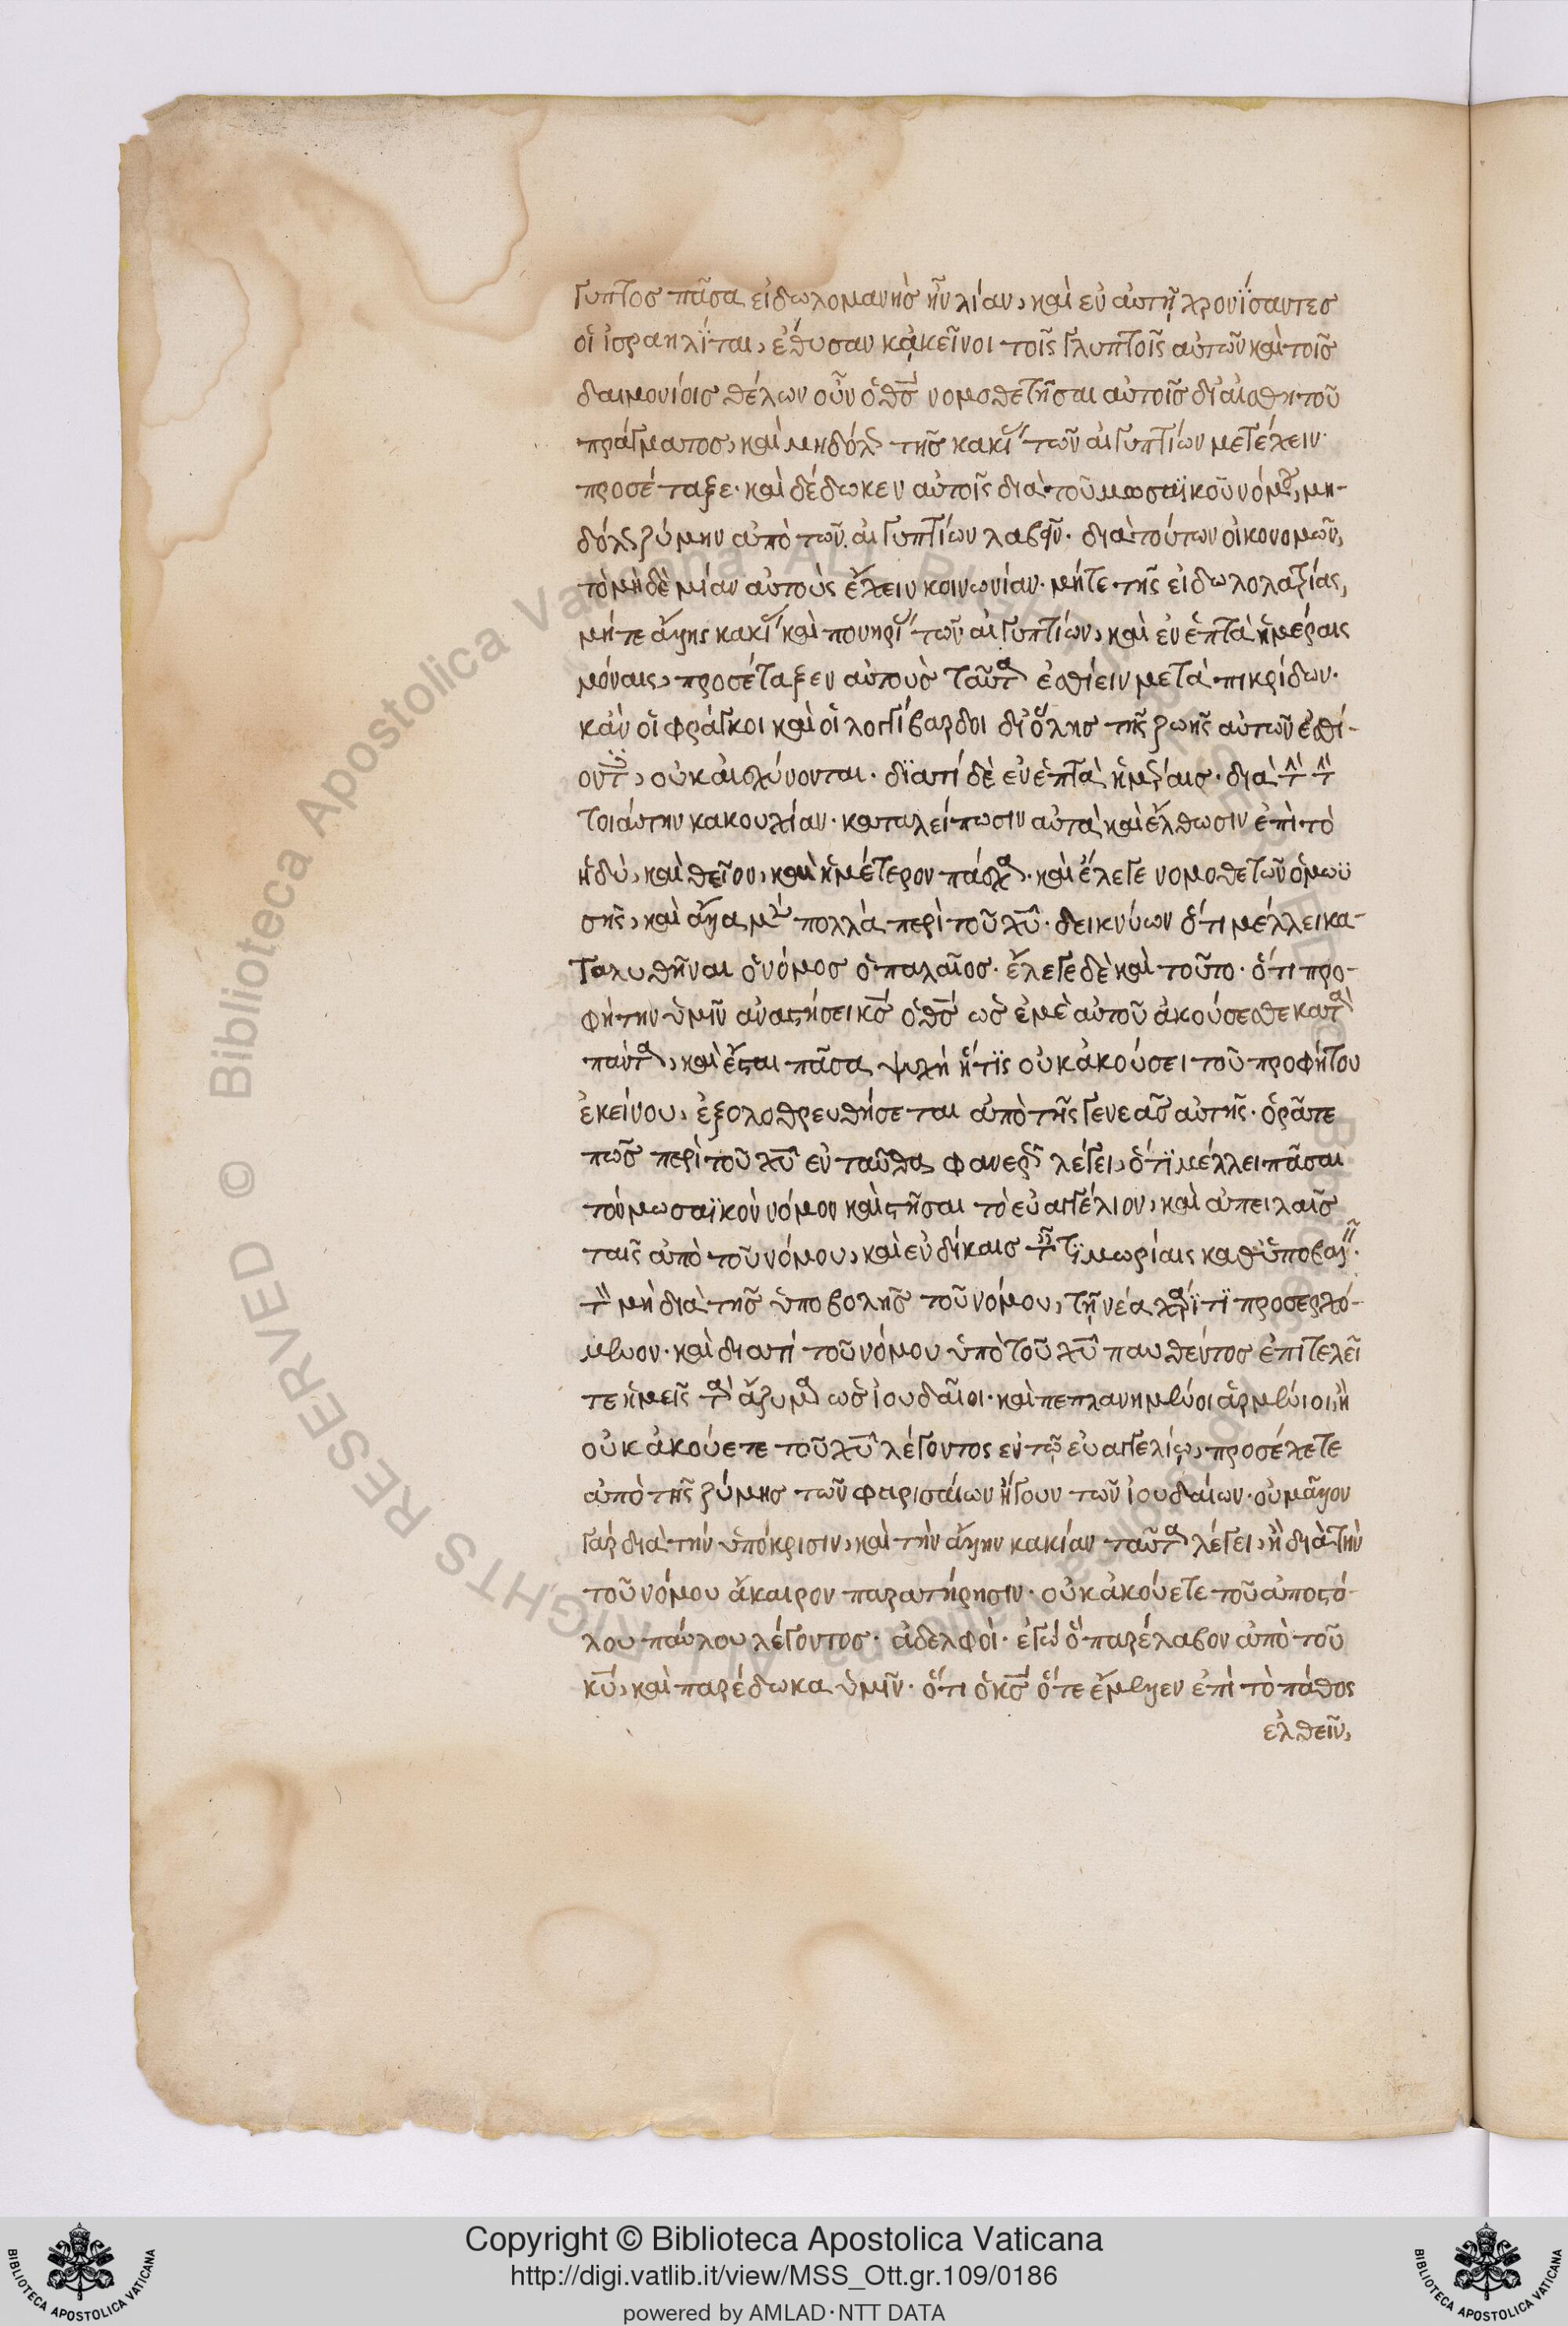 γυπτος πᾶσα εἰδωλομανὴς ἦν λίαν, καὶ ἐν αὐτῇ χρονΐσαντες
οἱ ἰσραηλῖται, ἔθυσαν κᾀκεῖνοι τοῖς γλυπτοῖς αὐτῶν καὶ τοῖς
δαιμονίοις θέλων οὖν ὁ θς νομοθετῆσαι αὐτοῖς δι' αἰσθητοῦ
πράγματος, καὶ μηδόλ τῆς κακί τῶν αἰγυπτίων μετέχειν·
προσέταξε· καὶ δέδωκεν αὐτοῖς διὰ τοῦ μωσαϊκοῦ νόμου, μη-
δόλ ζύμην ἀπὸ τῶν αἰγυπτίων λαβεῖν· διὰ τούτων οἰκονομῶν,
τὸ μηδὲ μίαν αὐτοὺς ἔχειν κοινωνίαν· μήτε τῆς εἰδωλολατρίας,
μήτε ἄλλης κακί καὶ πονηρί τῶν αἰγυπτίων, καὶ ἐν ἑπτὰ ἡμέραις
μόναις, προσέταξεν αὐτοὺς ταῦτα ἐσθίειν μετὰ πικρίδων·
κἀν οἱ φράγκοι καὶ οἱ λογγίβαρδοι δι' ὅλης τῆς ζωῆς αὐτῶν ἐσθί-
οντ, οὐκ αἰσχύνονται· διατί δὲ ἐν ἑπτὰ ἡμέραις· διὰ τὸ τὴν
τοιαύτην κακουχίαν· καταλείπωσιν αὐτὰ καὶ ἔλθωσιν ἐπὶ τὸ
ἡδὺ, καὶ θεῖον, καὶ ἡμέτερον πάσχα· καὶ ἔλεγε νομοθετῶν ὁ μωϋ
σῆς, καὶ ἄλλα μὲν πολλὰ περὶ τοῦ χυ· δεικνύων ὅτι μέλλει κα-
ταλυθῆναι ὁ νόμος ὁ παλαῖος· ἔλεγε δὲ καὶ τοῦτο· ὅτι προ-
φήτην ὑμῖν ἀναστήσει κς ὁ θς ὡς ἐμὲ αὐτοῦ ἀκούσεσθε κατὰ
πάντα, καὶ ἔσται πᾶσα ψυχὴ ἥτις οὐκ ἀκούσει τοῦ προφήτου
ἐκείνου, ἐξολοθρευθήσεται ἀπὸ τῆς γενεᾶς αὐτῆς· ὁρᾶτε
πῶς περὶ τοῦ χυ ἐνταῦθα φανερῶς λέγει, ὅτι μέλλει πᾶσαι
τὸν μωσαϊκὸν νόμον καὶ στῆσαι τὸ εὐαγγέλιον, καὶ ἀπειλαῖς
ταῖς ἀπὸ τοῦ νόμου, καὶ ἐνδίκαις τῶν τιμωρίαις καθυποβαλ
τ μὴ διὰ τῆς ὑποβολῆς τοῦ νόμου, τῇ νέα χάριτι προσερχό-
μενον· καὶ διατί τοῦ νόμου ὑπὸ τοῦ χυ παυθέντος ἐπιτελεῖ
τε ἡμεῖς τὰ ἄζυμα ὡς ἰουδαῖοι· καὶ πεπλανημένοι ἀρμένιοι, ἢ
οὐκ ἀκούετε τοῦ χυ λέγοντος ἐν τῷ εὐαγγελίῳ, προσέχετε
ἀπὸ τῆς ζύμης τῶν φαρισαίων ἤγουν τῶν ἰουδαίων· οὐ μᾶλλον
γὰρ διὰ τὴν ὑπόκρισιν, καὶ τὴν ἄλλην κακίαν ταῦτα λέγει, ἢ διὰ τὴν
τοῦ νόμου ἄκαιρον παρατήρησιν· οὐκ ἀκούετε τοῦ ἀποστό-
λου παύλου λέγοντος· ἀδελφοὶ· ἐγὼ ὃ παρέλαβον ἀπὸ τοῦ
κυ, καὶ παρέδωκα ὑμῖν· ὅτι ὁ κς ὅτε ἔμελλεν ἐπὶ τὸ πάθος
ἐλθεῖν,
Copyright © Biblioteca Apostolica Vaticana
http://digi.vatlib.it/view/MSS_Ott.gr.109/0186
powered by AMLAD·NTT DATA
BIBLIOTECA APOSTOLICA VATICANA
BIBLIOTECA APOSTOLICA VATICANA